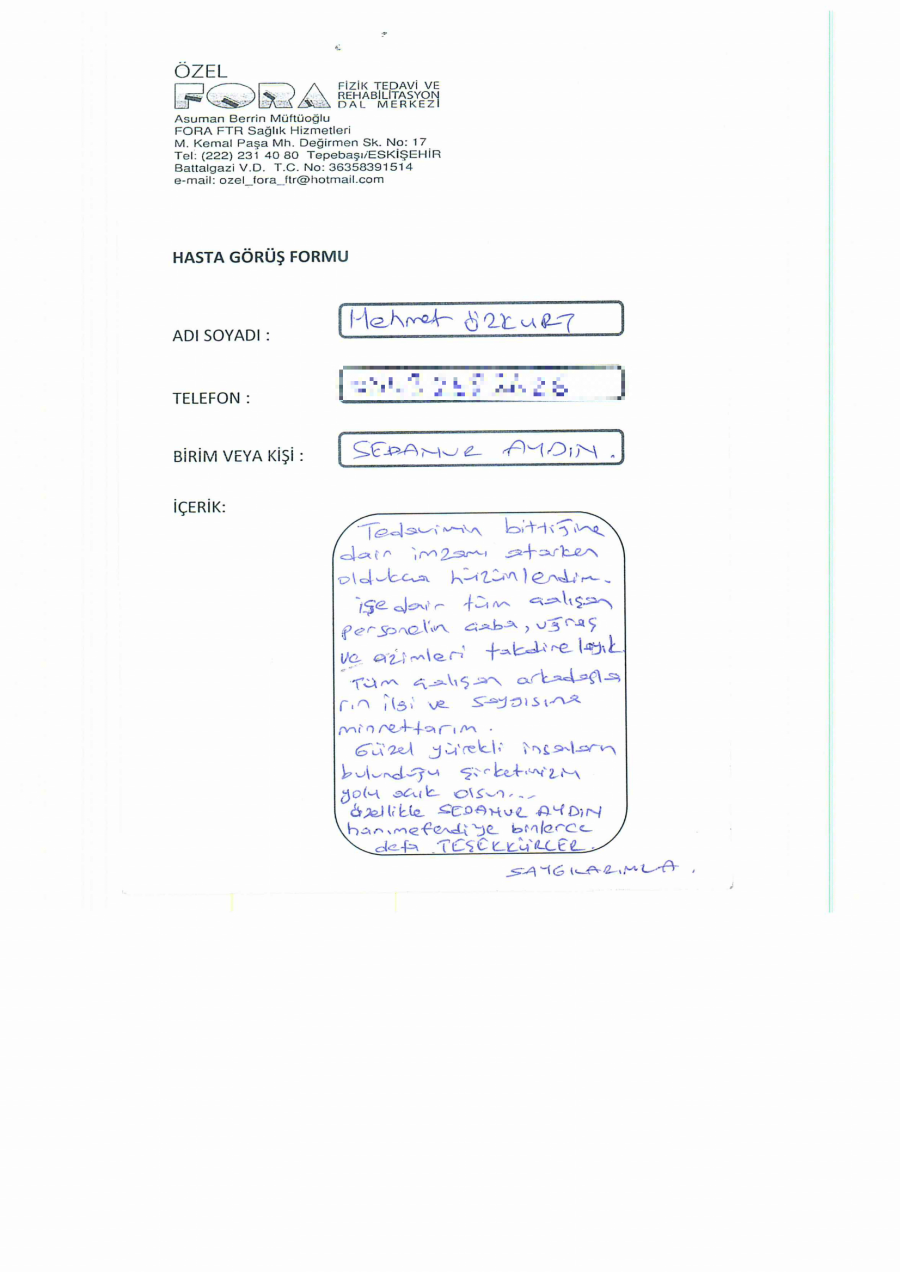 ÖZEL
FORA FİZİK TEDAVİ VE
REHABİLİTASYON
DAL MERKEZİ
Asuman Berrin Müftüoğlu
FORA FTR Sağlık Hizmetleri
M. Kemal Paşa Mh. Değirmen Sk. No: 17
Tel: (222) 231 40 80 Tepebaşı/ESKİŞEHİR
Battalgazi V.D. T.C. No: 36358391514
e-mail: ozel_fora_ftr@hotmail.com
HASTA GÖRÜŞ FORMU
ADI SOYADI : Mehmet ÖZKURT
TELEFON :
BİRİM VEYA KİŞİ : SEDANUR AYDIN .
İÇERİK:
Tedavimin bittiğine
dair imzamı atarken
oldukça hüzünlendim.
işe dair tüm çalışan
personelin çaba, uğraş
ve azimleri takdire layık.
Tüm çalışan arkadaşla
rın ilgi ve saygısına
minnettarım .
Güzel yürekli insanların
bulunduğu şirketinizin
yolu açık olsun...
özellikle SEDANUR AYDIN
hanımefendi'ye binlerce
defa TEŞEKKÜRLER.
SAYGILARIMLA .